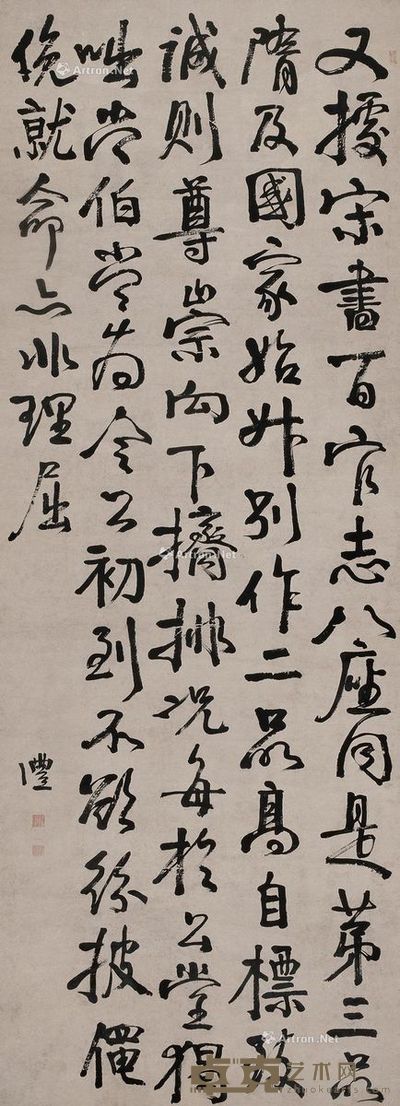 又據宋書百官志八座同是第三品
隋及國家始升別作二品髙自標致
誠則尊崇向下擠排況每於公堂獨
咄常伯當為令公初到不欲紛披僶
俛就命亦非理屈
澧
Artron.Net
Artron.Net
Artron.Net
Artron.Net
卓克艺术网